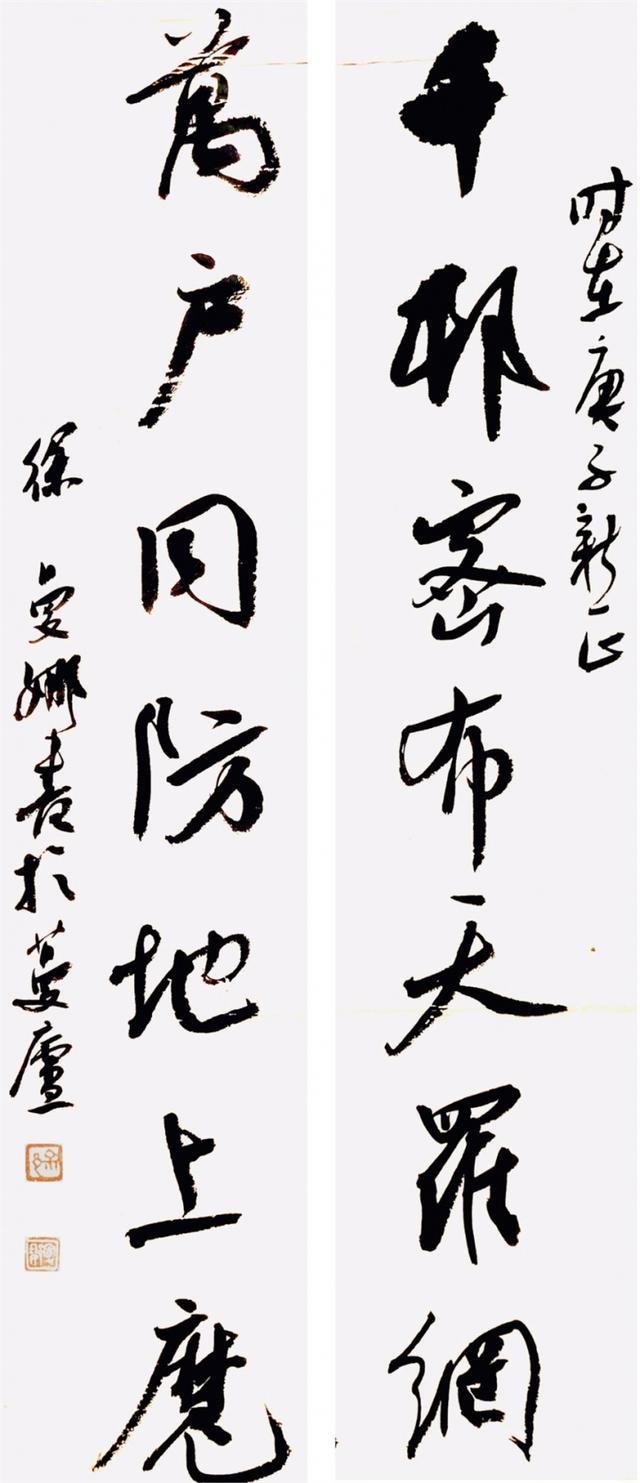 时在庚子新正
千邨密布天羅網
萬户同防地上魔
徐曼娜書於蔓廬